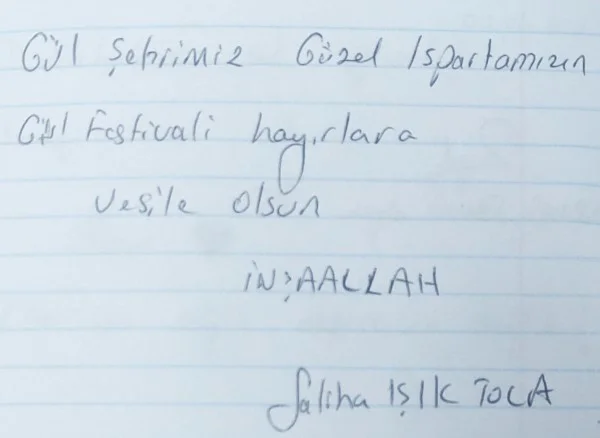 Gül Şehrimiz Güzel Ispartamızın
Gül Festivali hayırlara
vesile olsun
İNŞAALLAH
Saliha IŞIK TOCA